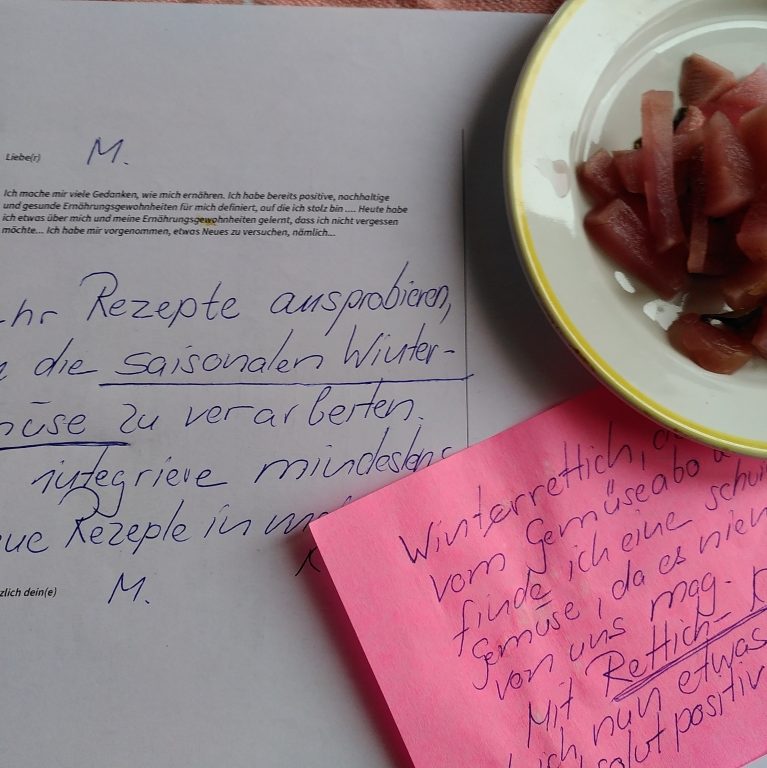 Liebe(r) M.
Ich mache mir viele Gedanken, wie mich ernähren. Ich habe bereits positive, nachhaltige
und gesunde Ernährungsgewohnheiten für mich definiert, auf die ich stolz bin .... Heute habe
ich etwas über mich und meine Ernährungsgewohnheiten gelernt, dass ich nicht vergessen
möchte... Ich habe mir vorgenommen, etwas Neues zu versuchen, nämlich...
hr Rezepte ausprobieren,
die saisonalen Winter-
müse zu verarbeiten.
integriere mindestens
ue Rezepte in
zlich dein(e) M.
Winterrettich,
vom Gemüseabo
finde ich eine
Gemüse, da es
von uns mag.
Mit Rettich-
ich nun etwas
solut positiv